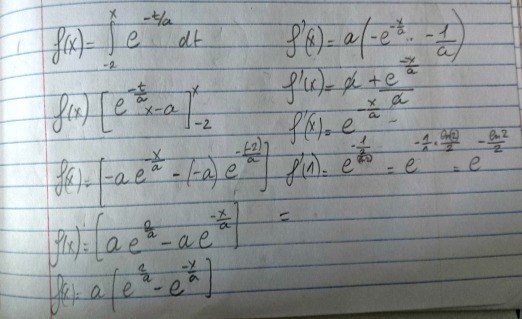 f(x) = ∫₋₂ˣ e^(-t/a) dt
f(x) [e^(-t/a) x - a]₋₂ˣ
f(x) = [-a e^(x/a) - (-a) e^(-(-2)/a)]
f(x) = [a e^(2/a) - a e^(-x/a)]
f(x) = a [e^(2/a) - e^(-x/a)]
f'(x) = a (-e^(-x/a) · -1/a)
f'(x) = a + e^(-x/a) / a
f'(x) = e^(-x/a) -
=